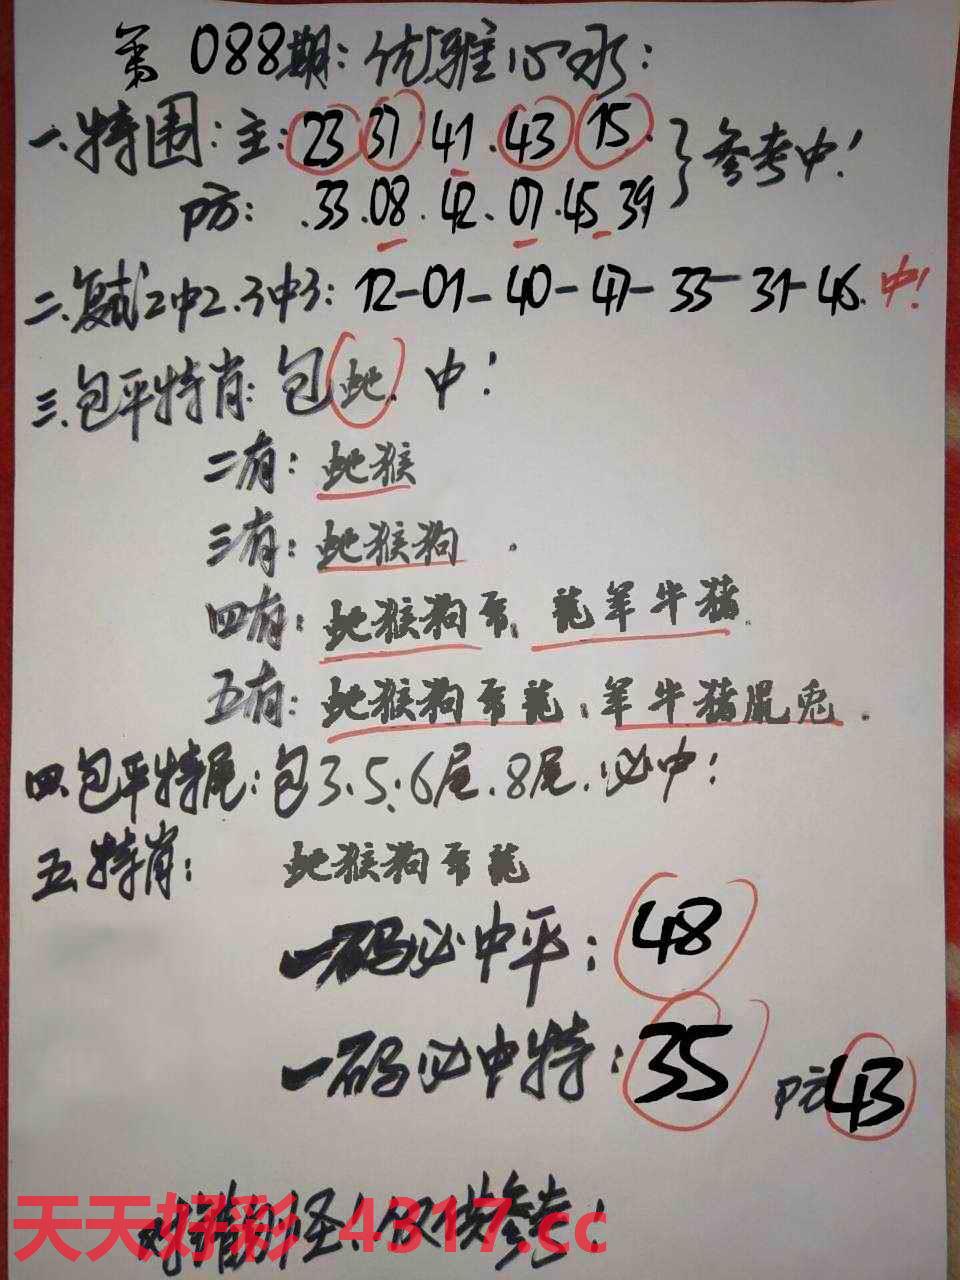 第088期:优雅心水:
一.特围:主:23 37.41.43 15.
防:.33.08.42.07.45 39
}参考中!
二.复式2中2.3中3:12-01-40-47-33-31-46.中!
三.包平特肖:包蛇.中!
二有:蛇猴
三有:蛇猴狗.
四有:蛇猴狗 龙羊牛猪.
五有:蛇猴狗 龙.羊牛猪鼠兔.
四.包平特尾:包3.5.6尾.8尾.必中!
五.特肖:蛇猴狗 龙
一码必中平:48
一码必中特:35 防43
对错别怪!仅供参考!
天天好彩 4317.cc